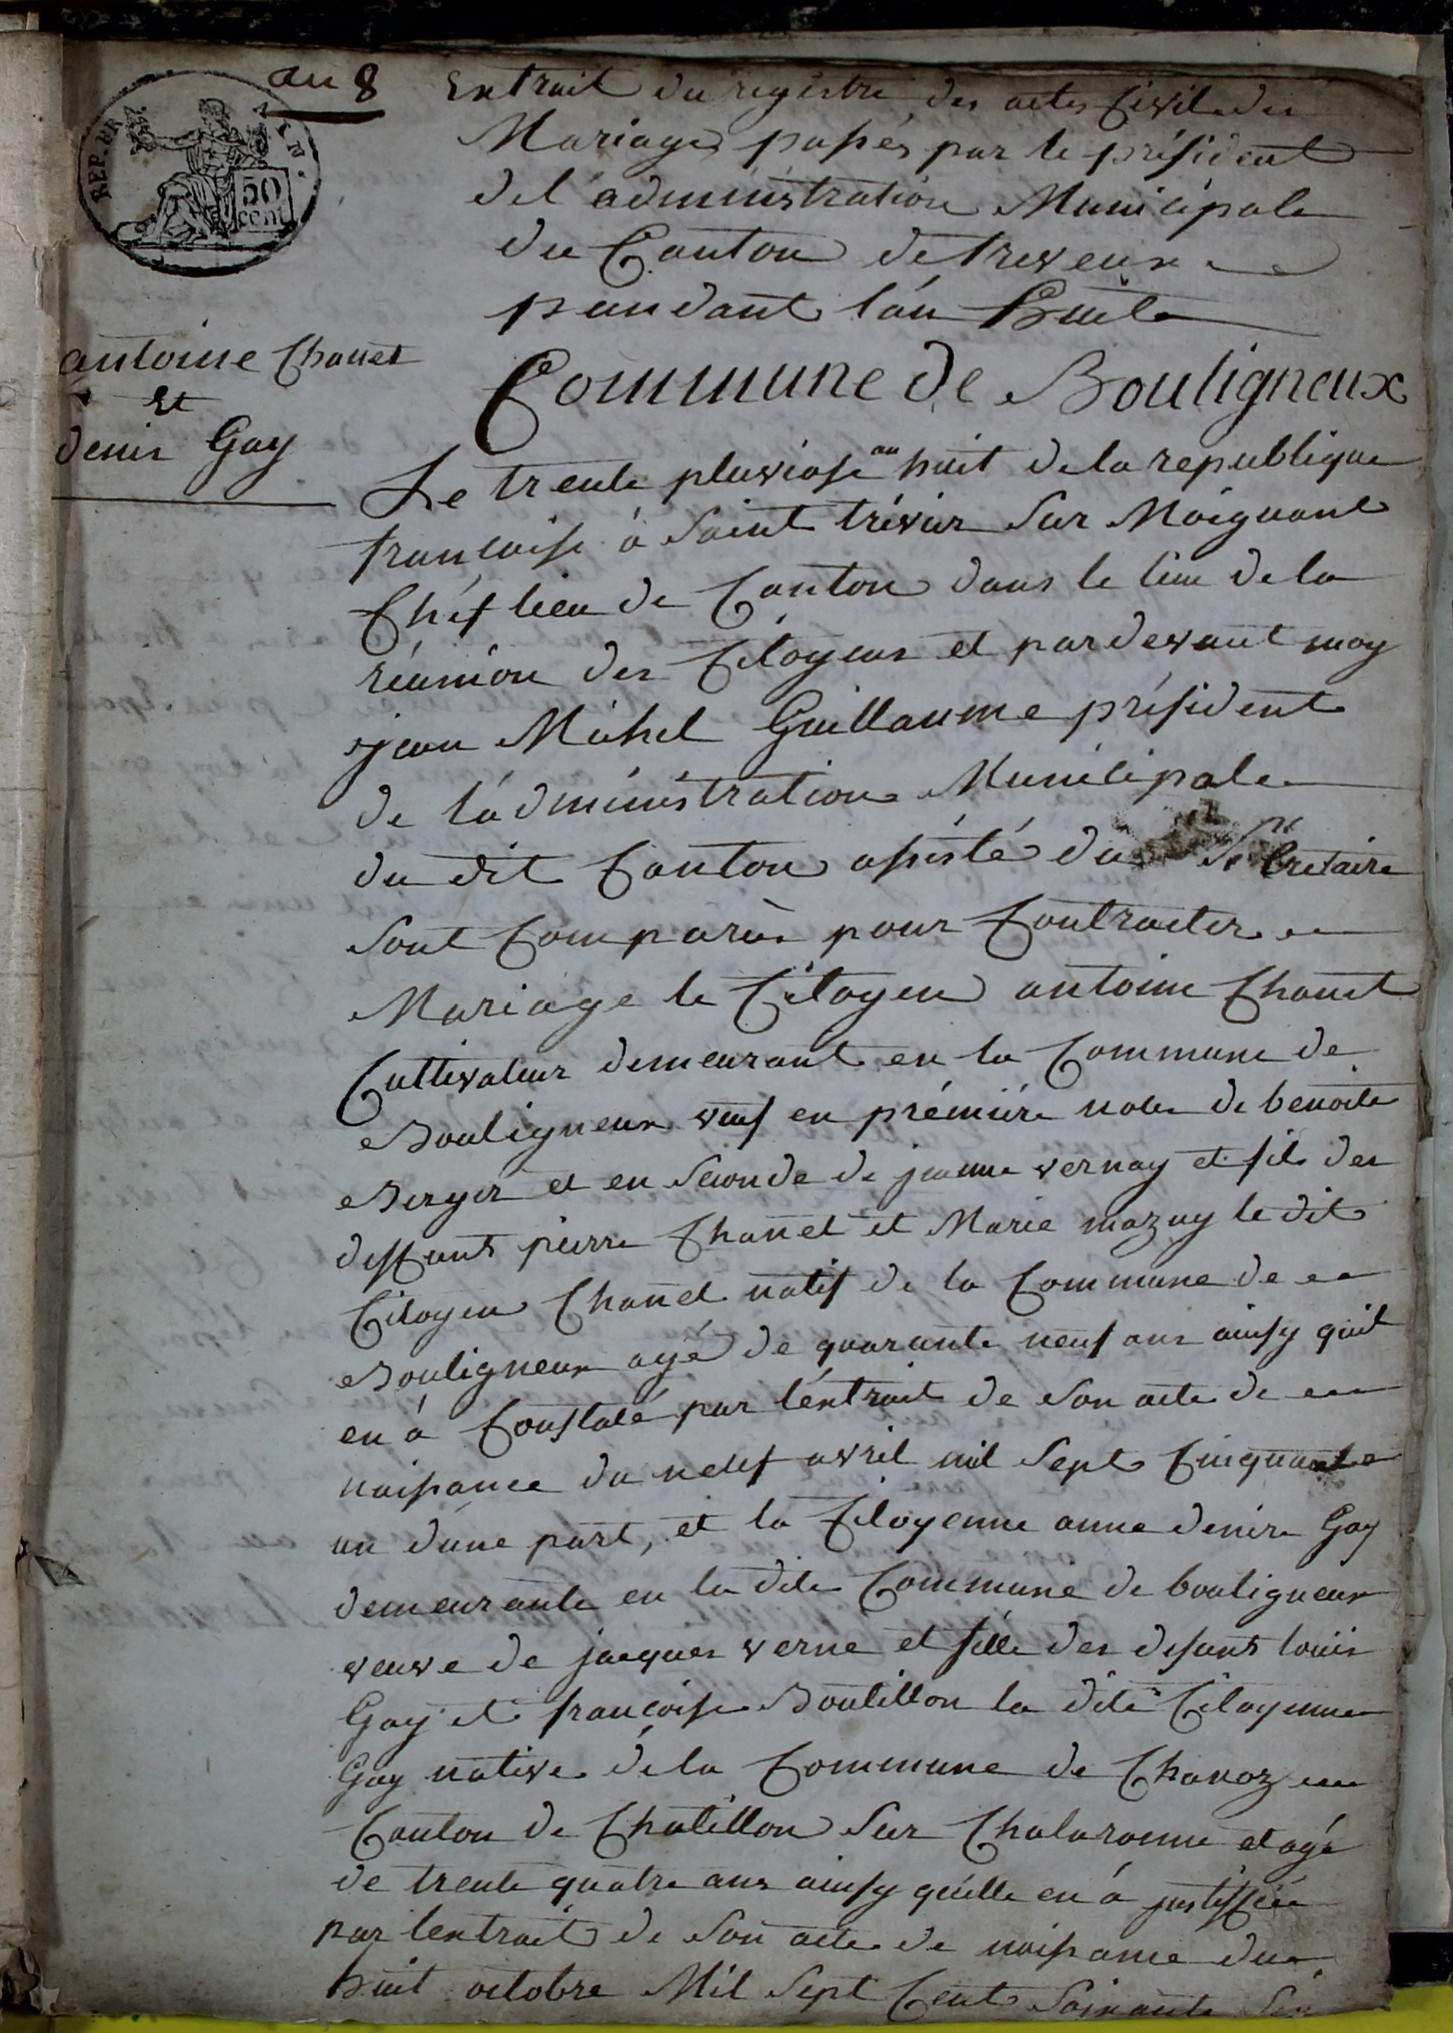 an 8
REP. FRA
50
cent
Extrait du registre des actes Civil des
Mariages passés par le président
del'administration Municipale
du Canton de treveux
pendant l'an huit
antoine Chanet
et
denise Gay
Commune de Bouligneux
Le trente pluviose an huit de la republique
francaise à Saint trivier Sur Moignant
Chéf lieu de Canton dans le lieu de la
réunion des Citoyens et pardevant moy
jean Michel Guillaume président
de l'administration Municipale
du dit Canton assisté du Secretaire
Sont Comparùs pour Contracter
Mariage le Citoyen antoine Chanet
Cultivateur demeurant en la Commune de
Bouligneux veuf en prémiére noces de benoite
Berger et en seconde de jeanne vernay et fils des
deffunts pierre Chanet et Marie mazuy le dit
Citoyen Chanel natif de la Commune de
Bouligneux agé de quarante neuf ans ainsy quil
en à Constaté par l'éxtrait de Son acte de
naissance du neuf avril mil Sept Cinquante
un d'une part, et la Citoyenne anne denise Gay
demeurante en la dite Commune de bouligneux
veuve de jacques verne et fille des defunts louis
Gay et francoise Boutillon la dite Citoyenne
Gay native de la Commune de Chanoz
Canton de Chatillon Sur Chalaronne et agé
de trente quatre ans ainsy quélle en à justiffiée
par lextrait de Son acte de naissance du
huit octobre Mil Sept Cent Soixante Six